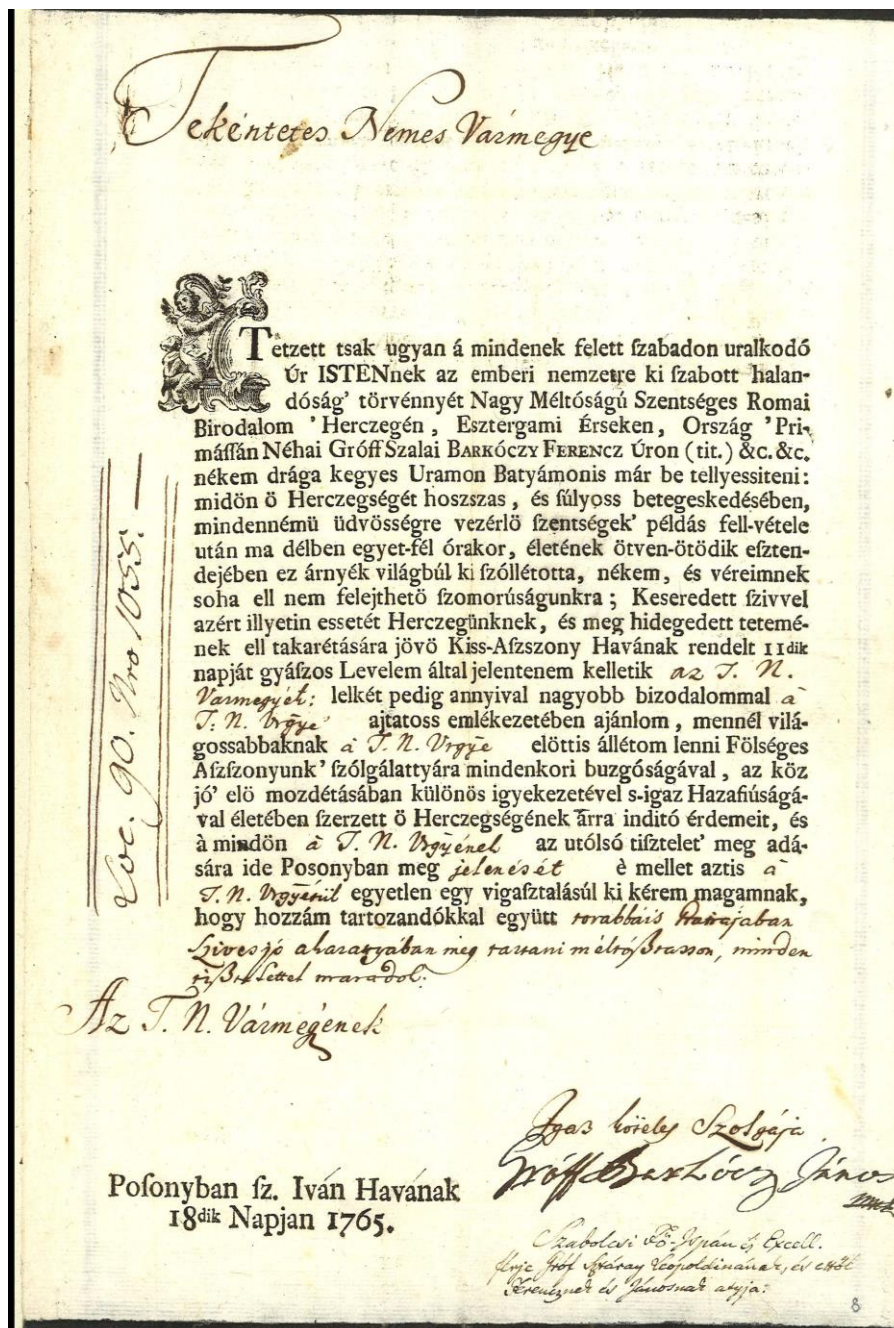 Tekéntetes Nemes Vármegye
Tetzett tsak ugyan á mindenek felett ſzabadon uralkodó
Úr ISTENnek az emberi nemzetre ki ſzabott halan-
dóság' törvénnyét Nagy Méltóságú Szentséges Romai
Birodalom 'Herczegén, Esztergami Érseken, Ország 'Pri-
máſſán Néhai Gróff Szalai BARKÓCZY FERENCZ Úron (tit.) &c. &c.
nékem drága kegyes Uramon Batyámonis már be tellyessiteni:
midön ö Herczegségét hoszszas, és súlyoss betegeskedésében,
mindennémü üdvösségre vezérlö ſzentségek' példás fell-vétele
után ma délben egyet-fél órakor, életének ötven-ötödik eſzten-
dejében ez árnyék világbúl ki ſzóllétotta, nékem, és véreimnek
soha ell nem felejthetö ſzomorúságunkra; Keseredett ſzivvel
azért illyetin essetét Herczegünknek, és meg hidegedett tetemé-
nek ell takarétására jövö Kiss-Aſzszony Havának rendelt 11dik
napját gyászos Levelem által jelentenem kelletik az T. N.
Varmegyét: lelkét pedig annyival nagyobb bizodalommal à
T. N. Vrgye ajtatoss emlékezetében ajánlom, mennél vilá-
gossabbaknak à T. N. Vrgye elöttis állétom lenni Fölséges
Aſzszonyunk' ſzólgálattyára mindenkori buzgóságával, az köz
jó' elö mozdétásában különös igyekezetével s-igaz Hazafiúságá-
val életében szerzett ö Herczegségének árra inditó érdemeit, és
à mindön à T. N. Vrgyénel az utólsó tiſztelet' meg adá-
sára ide Posonyban meg jelenését è mellet aztis à
T. N. Vrgyétül egyetlen egy vigaſztalásúl ki kérem magamnak,
hogy hozzám tartozandókkal együtt továbbáis
Szives jó akarattyában meg tartani méltóztasson, minden
tisztelettel maradok:
Az T. N. Vármegének
Loc. 90. Nro 1055.
Igaz köteles Szolgája
Gróff Barkócz János
Poſonyban ſz. Iván Havának
18dik Napjan 1765.
Szabolcsi Fö-Ispán és Excell.
férje Gróf Sztáray Leopoldinának, és ettöl
Ferencznek és Jánosnak atyja:
8